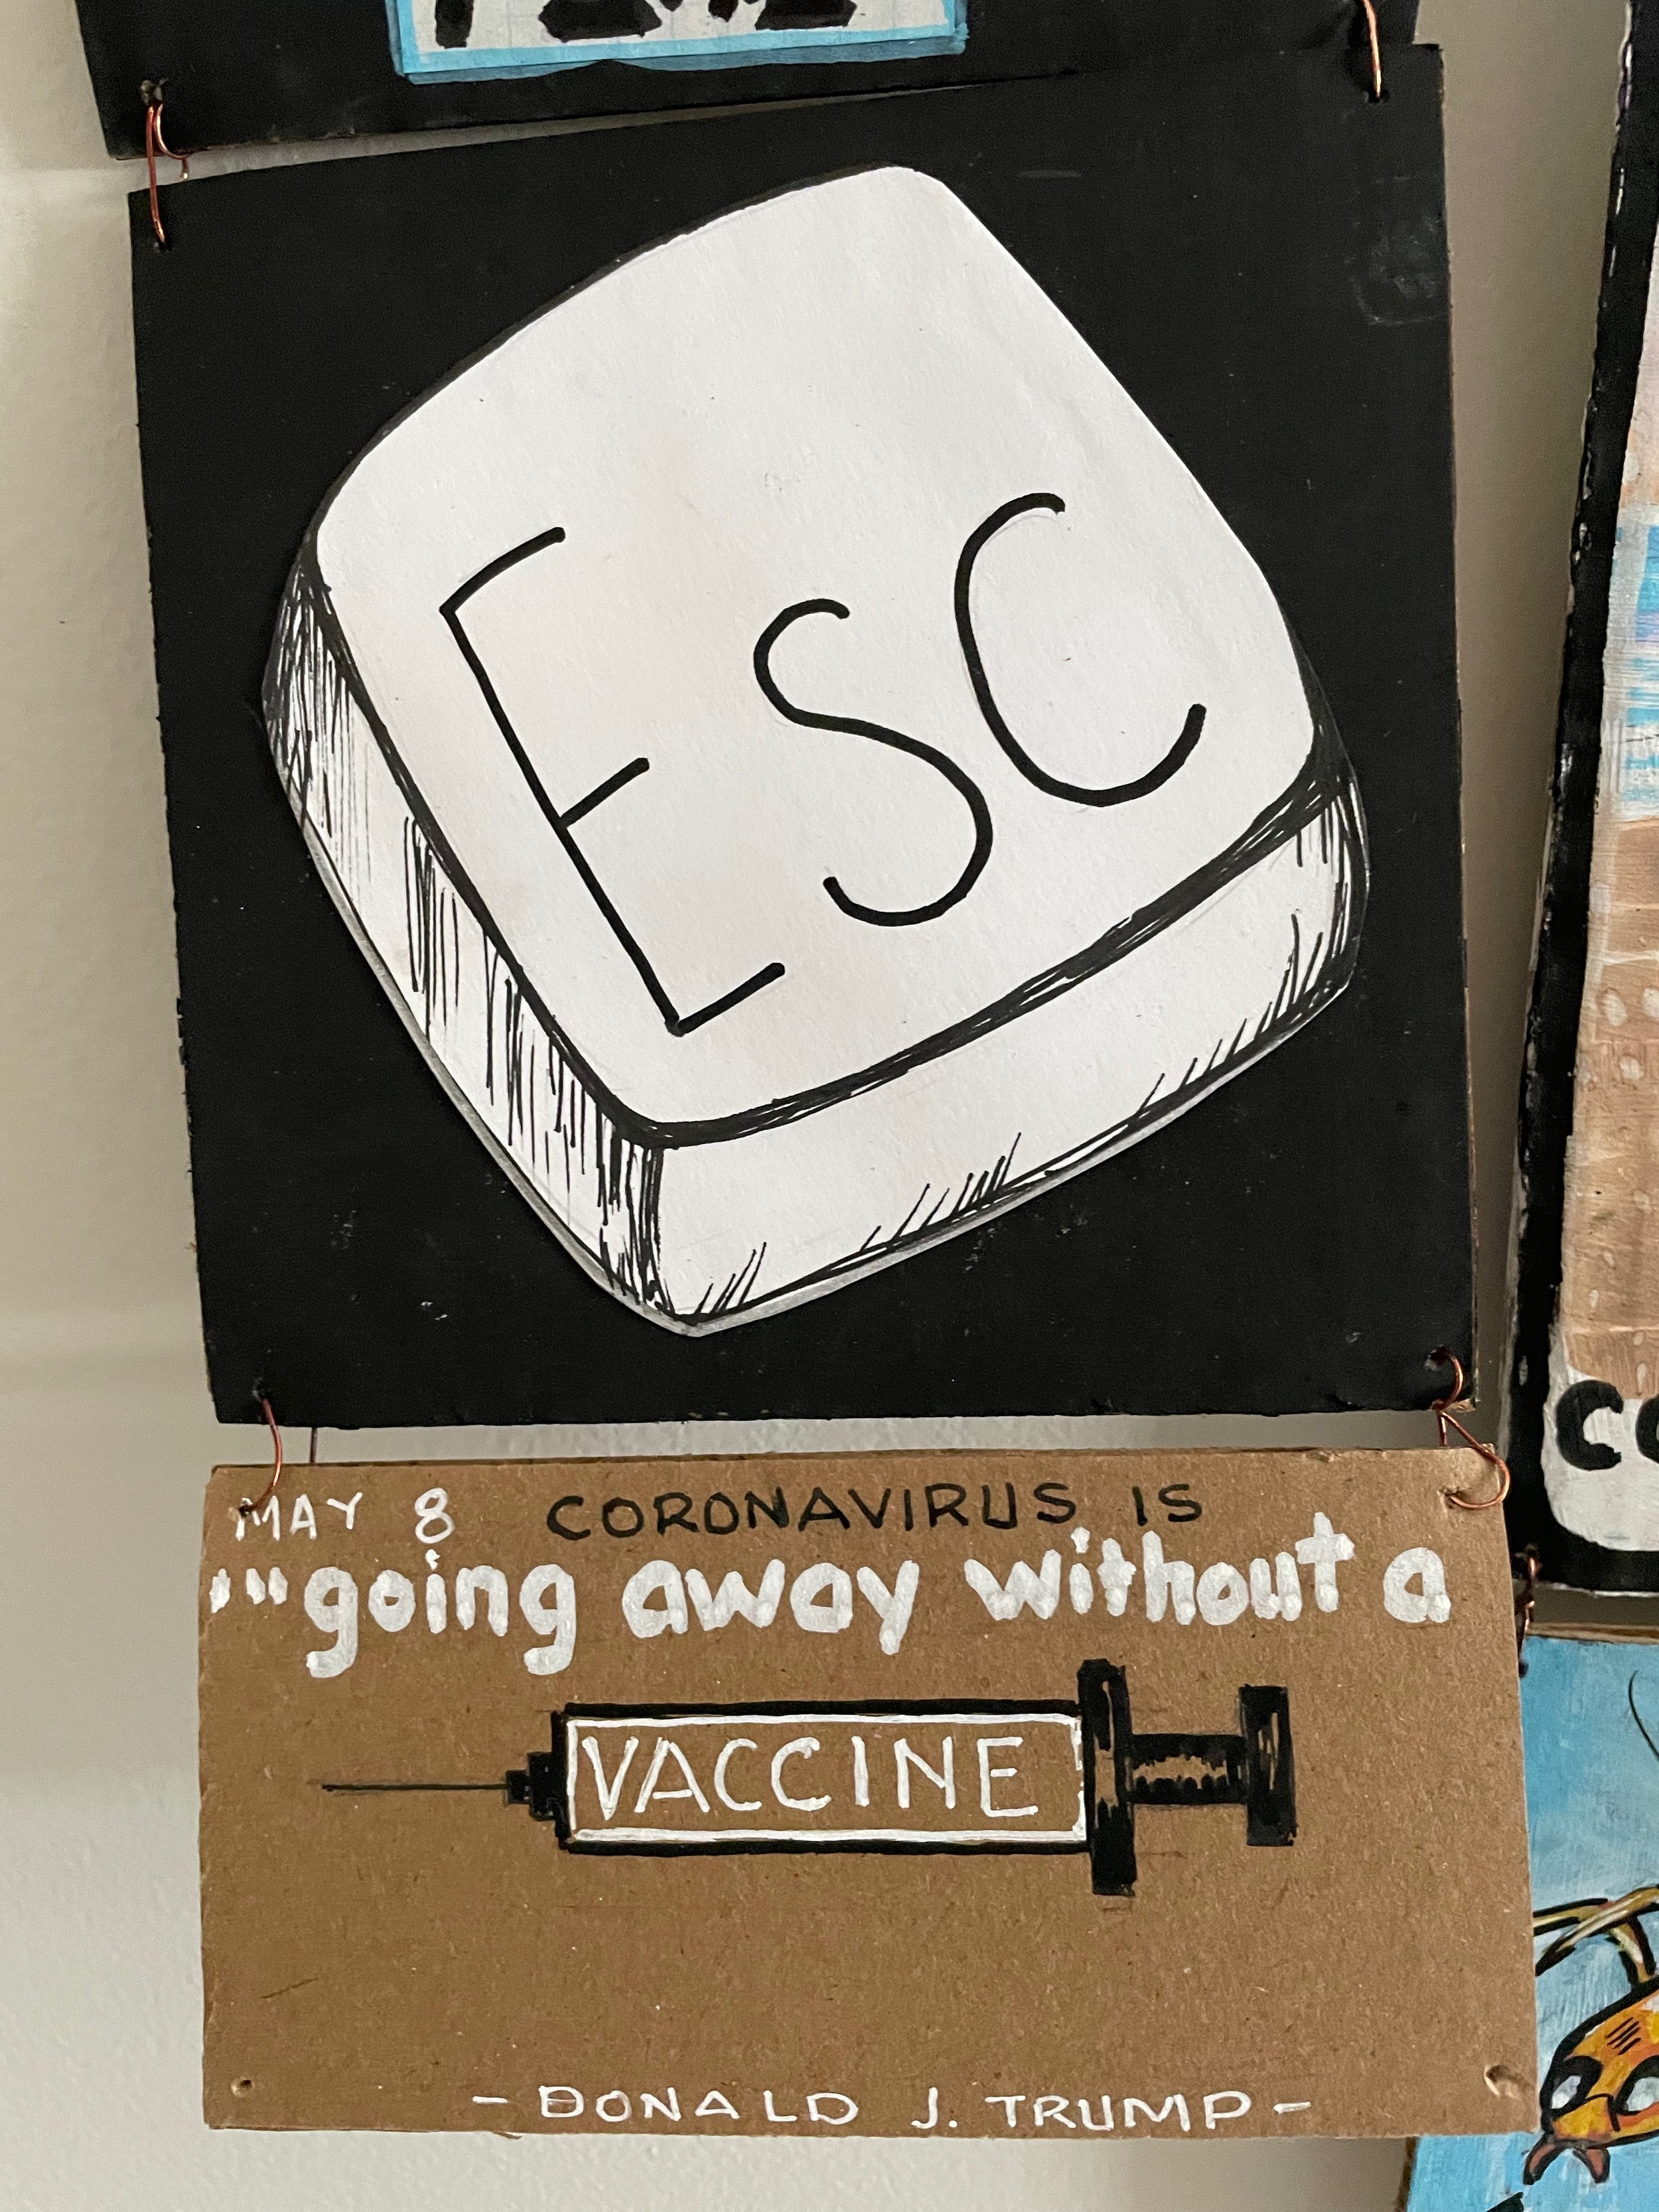 Esc
MAY 8 CORONAVIRUS IS
""going away without a
VACCINE
- DONALD J. TRUMP -